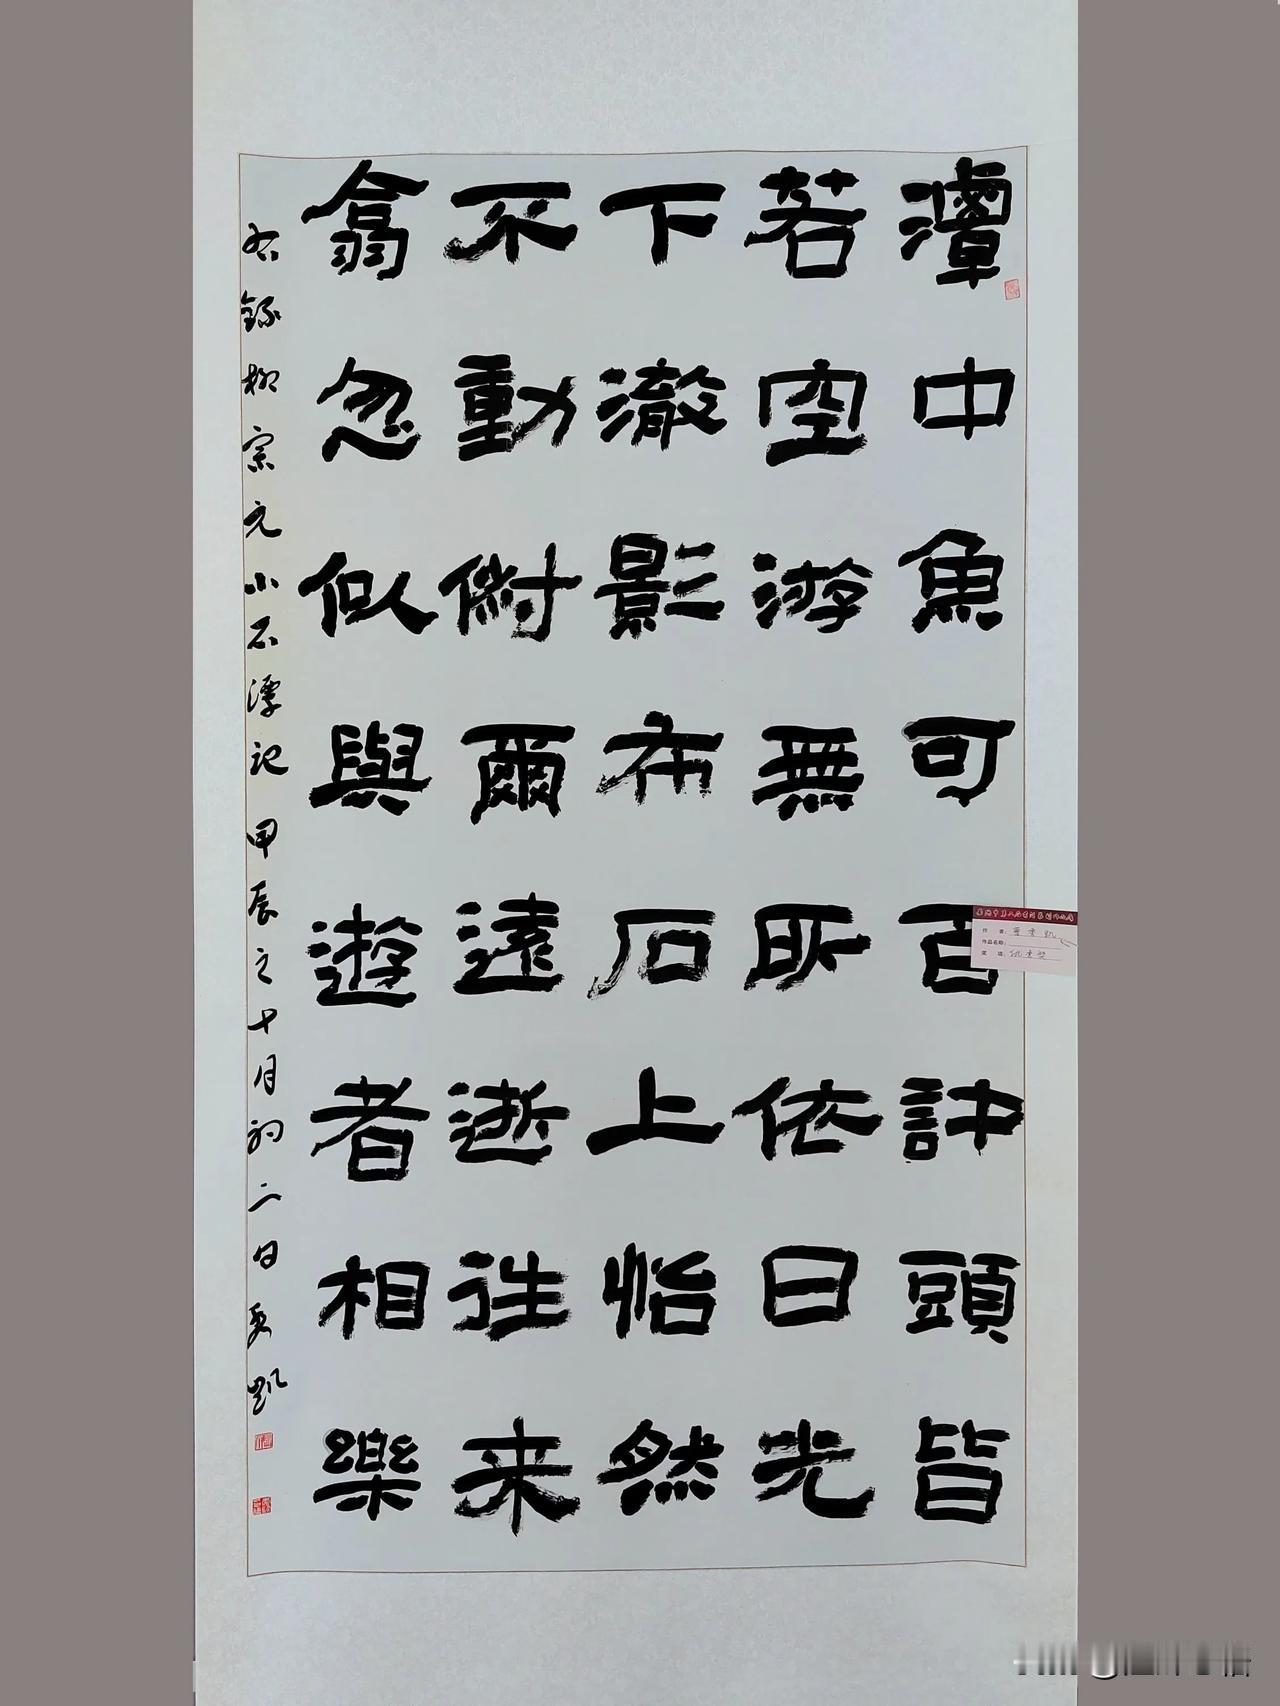 潭中魚可百許頭皆
若空游無所依日光
下澈影布石上怡然
不動俶爾遠逝往来
翕忽似與遊者相樂
右錄柳宗元小石潭記甲辰之十月初二日夏凱